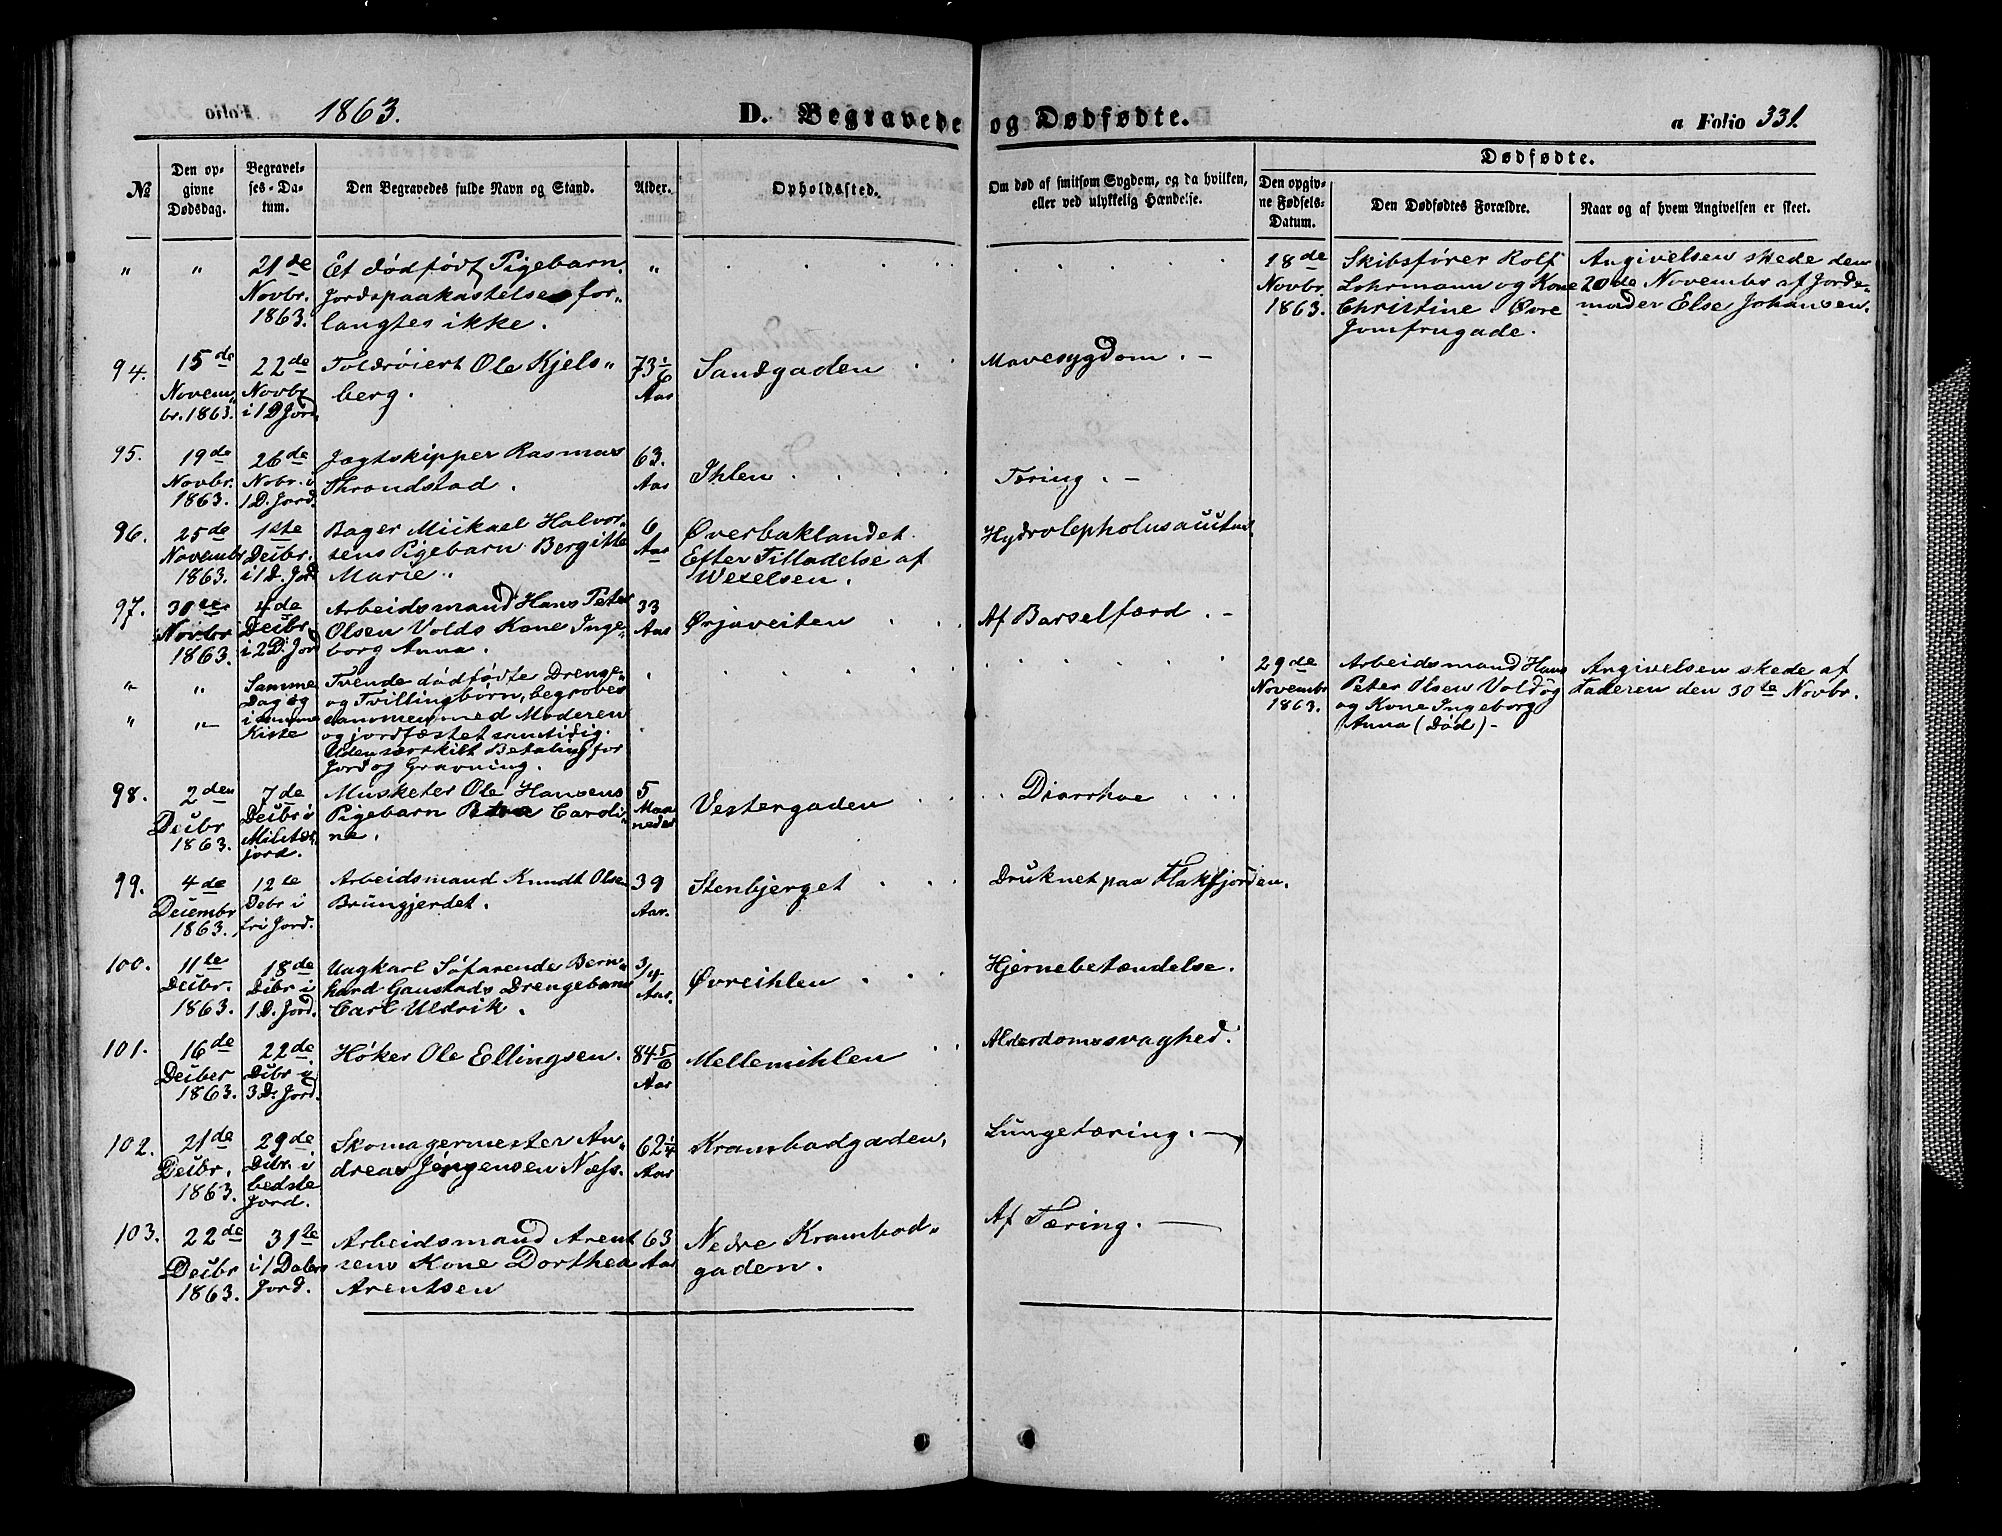 1863.
D. Begravede og Dødfødte.
a Folio 331.
№
Den opgivne Dødsdag.
Begravelses-Datum.
Den Begravedes fulde Navn og Stand.
Alder.
Opholdssted.
Om død af smitsom Sygdom, og da hvilken,
eller ved ulykkelig Hændelse.
Dødfødte.
Den opgivne Fødsels-Datum.
Den Dødfødtes Forældre.
Naar og af hvem Angivelsen er skeet.
" " 21de Novbr. 1863.
Et dødfødt Pigebarn.
Jordspaakastelse for-
langtes ikke.
"
18de Novbr. 1863.
Skibsfører Rolf
Lohrmann og Kone
Christine Øvre
Jomfrugade.
Angivelsen skede den
20de Novembr af Jorde-
moder Else Johansen.
94.
15de Novem- br. 1863.
22de Novbr i 1 D. Jord
Toldrøiert Ole Kjels-
berg.
73 1/6 Aar
Sandgaden
Mavesygdom. -
95.
19de Novbr. 1863.
26de Nobr. i 1 D. Jord.
Jagtskipper Rasmus
Throndstad.
63. Aar
Ihlen
Tæring. -
96.
25de Novembr 1863.
1ste Deibr. i 1 D. Jord
Bager Mickael Halvor-
sens Pigebarn Bergitte
Marie.
6 Aar
Øverbaklandet.
Efter Tilladelse af
Wexelsen.
97.
30te Novbr 1863.
4de Deibr. i 2 D. Jord
Arbeidsmand Hans Peter
Olsen Volds Kone Inge-
borg Anna.
33 Aar
Ørjaveiten
Af Barselfærd. -
" " Samme Dag og i samme Kiste
Tvende dødfødte Drenge-
og Tvillingbørn, begroves
sammen med Moderen
og jordfæstet samtidig.
Uden særskilt Betaling for
Jord og Gravning.
29de Novembr 1863.
Arbeidsmand Hans
Peter Olsen Vold og
og Kone Ingeborg
Anna (Død) -
Angivelsen skede af
Faderen den 30te Novbr.
98.
2den Deibr 1863.
7de Deibr i Militær- jord.
Musketer Ole Hansens
Pigebarn Caroli-
ne.
5 Maa- neder
Vestergaden
Diarrhoe
99.
4de Deiembr 1863.
12te Debr i fri Jord.
Arbeidsmand Knudt Olsen
Brungjerdet.
39 Aar.
Stenbjerget
Druknet paa Flakfjorden.
100.
11te Deibr. 1863.
18de Dibr i 1 D. Jord.
Ungkarl Søfarende Bern-
hard Gaustads Drengebarn
Carl Uldrik.
3/4 Aar.
Øvreihlen
Hjernebetændelse.
101.
16de Deiber 1863.
22de Dibr i 3 D. Jord.
Høker Ole Ellingsen.
84 5/6 Aar
Mellemihlen
Alderdomssvaghed.
102.
21de Deibr. 1863.
29de Dibr. i bedste Jord.
Skomagermester An-
dreas Jørgensen Næss.
62 1/4 Aar
Krambodgaden.
Lungetæring. -
103.
22de Deibr 1863.
31te i 1 Dalers Jord.
Arbeidsmand Arent
sens Kone Dorthea
Arentsen
63 Aar
Nedre Krambod-
gaden.
Af Tæring. -